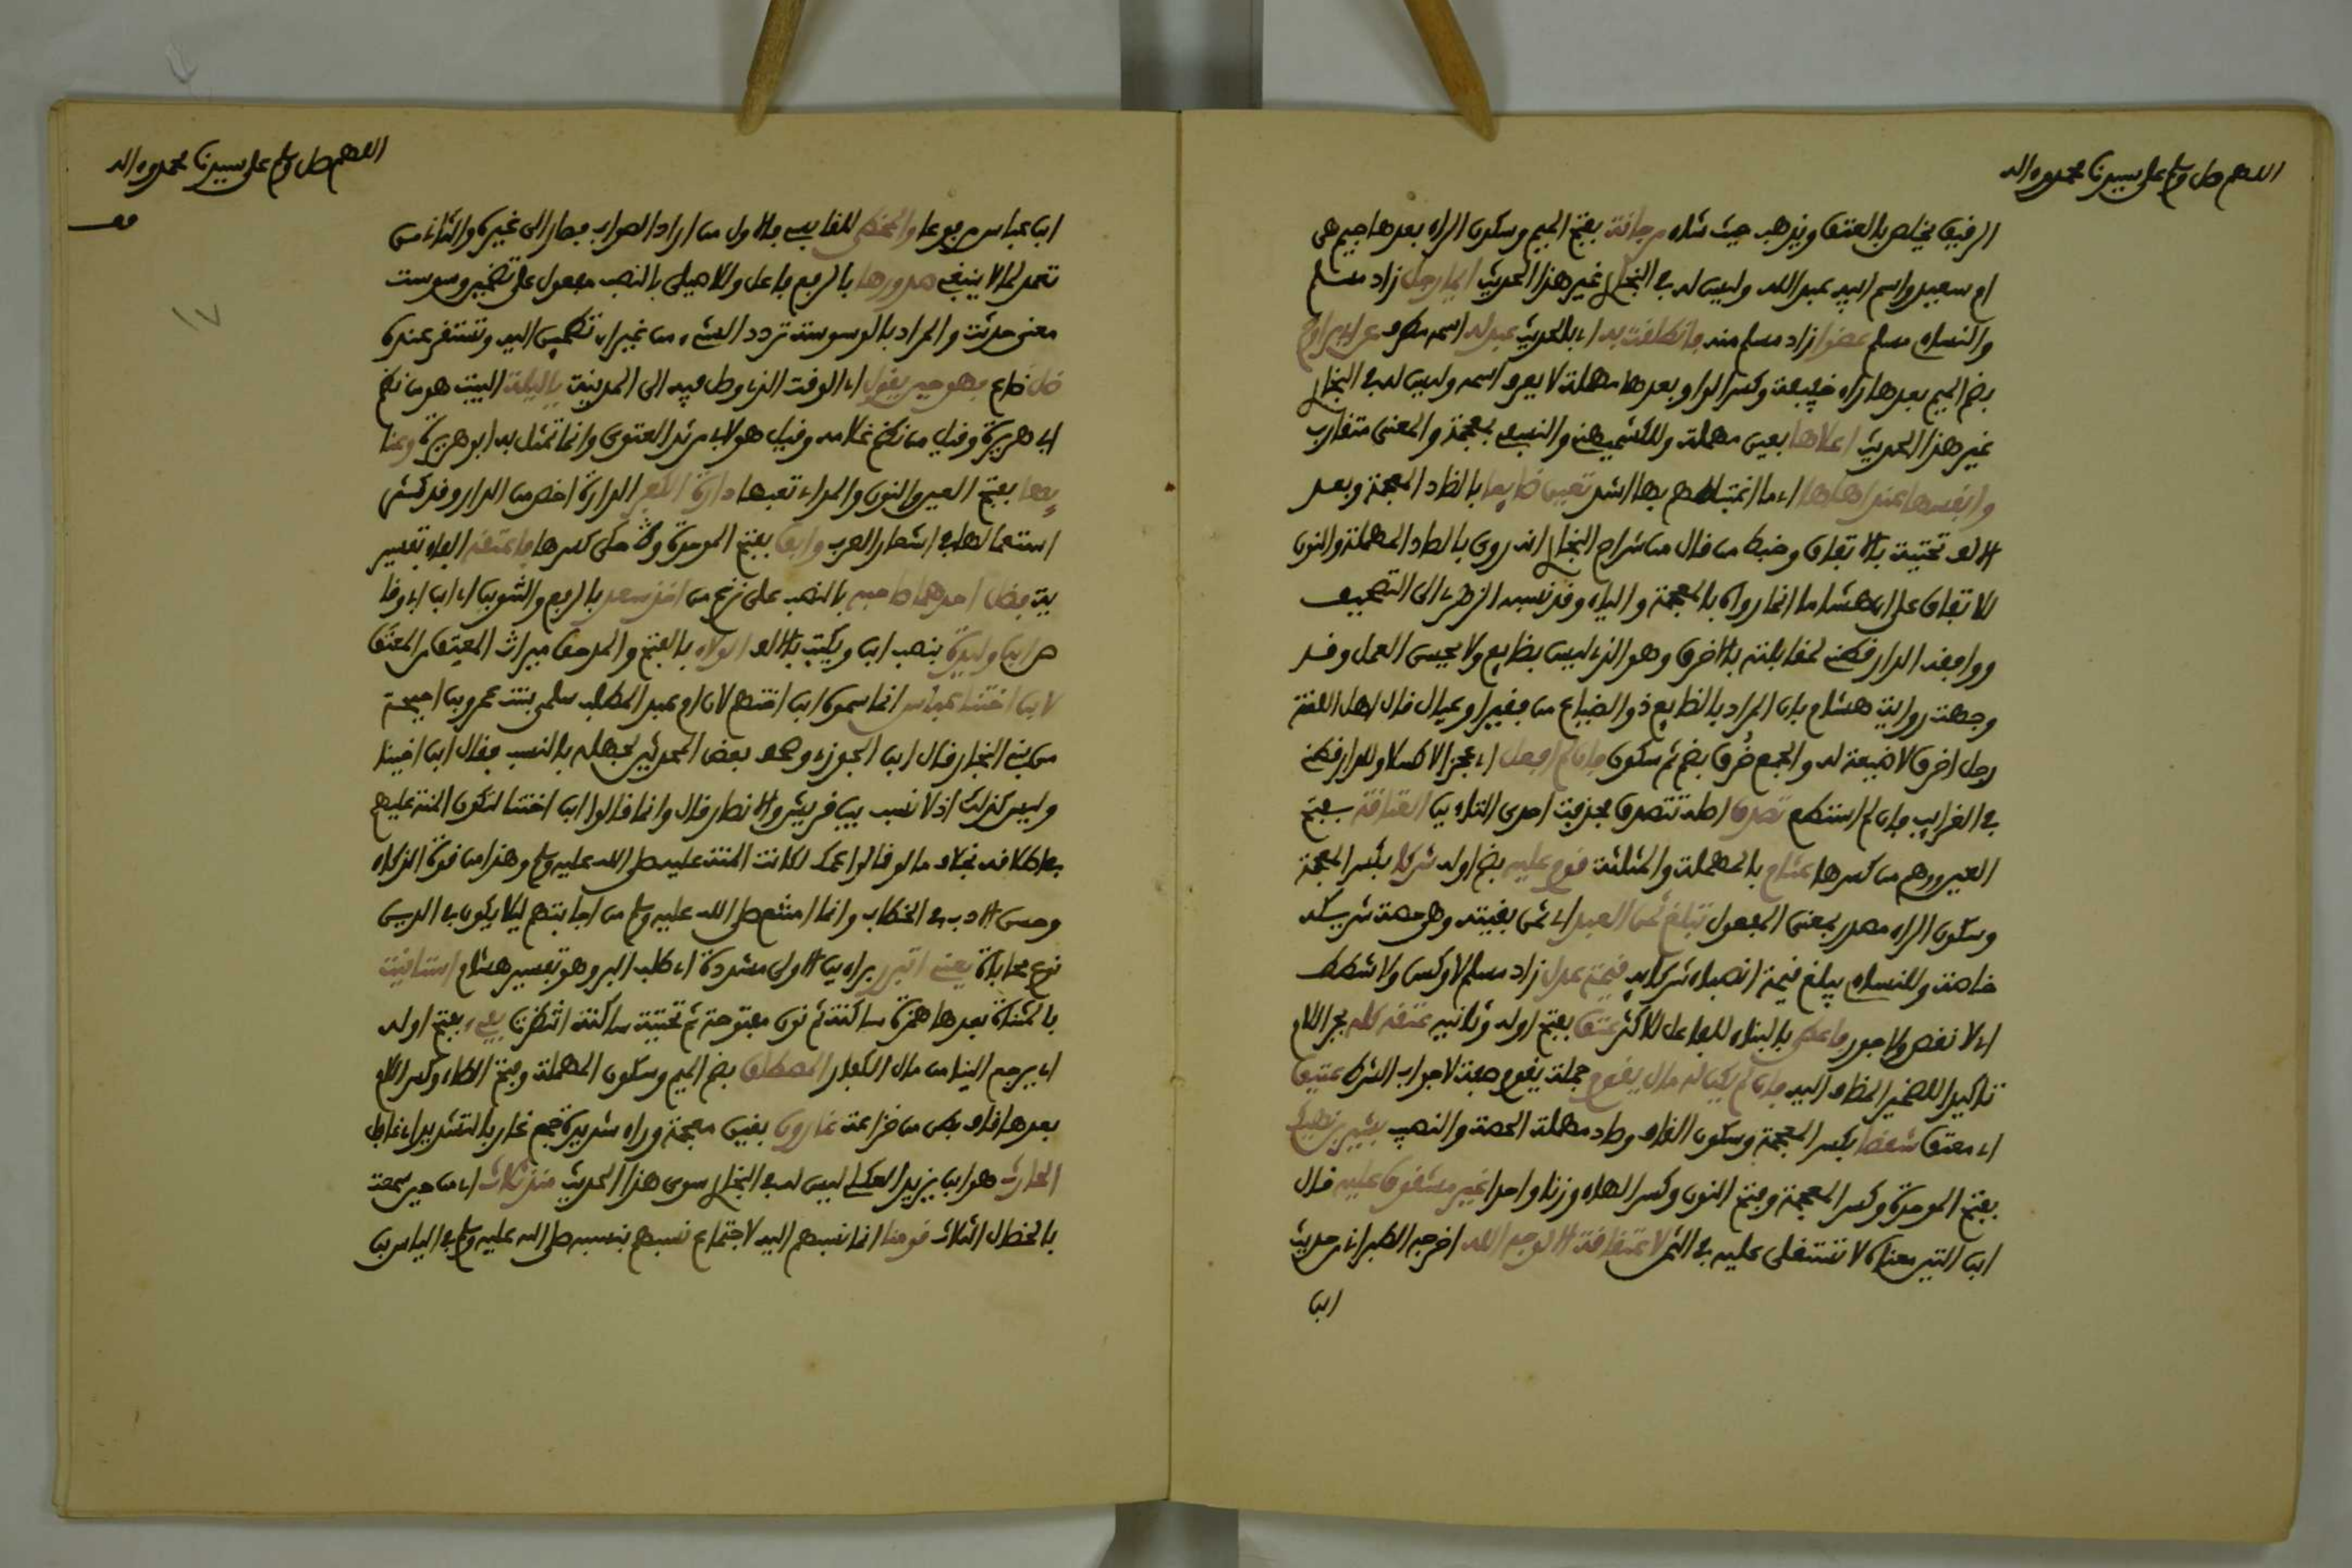 اللهم صل وسلم على سيدنا محمد وءاله
الرفيق يخلص بالعتق ويذهب حيث شاء مرجانة بفتح الجيم وسكون الراء بعدها جيم هى
ام سعيد واسم ابيه عبد الله وليس له في البخار غير هذا الحديث ايما رجل زاد مسلم
والنساء مسلم عضوا زاد مسلم منه فانطلقت به اي بالحديث عبد له اسمه مطرف عن ابى مراوح
بضم الميم بعدها راء خفيفة وكسر الواو بعدها مهملة لا يعرف اسمه وليس له في البخار
غير هذا الحديث اعلاها بعين مهملة وللكشميهنى والنسفى بمعجمة والمعنى متقارب
وانفسها عند اهلها اي ما اغتباطهم بها اشد تعين ضايعا بالضاد المعجمة وبعد
الالف تحتية بالاتفاق وخبط من قال من شراح البخار انه روى بالصاد المهملة والنون
للاتفاق على ان هشاما انما رواه بالمعجمة والياء وقد نسبه الزهري الى التصحيف
ووافقه الدارقطنى لمقابلته بالاخرق وهو الذي ليس بصانع ولا يحسن العمل وقد
وجهت رواية هشام بان المراد بالضايع ذو الضياع من فقير او عيال قال اهل اللغة
رجل اخرق لا صنعة له والجمع خُرق بضم ثم سكون فان لم افعل اي عجزا لا كسلا وللدارقطنى
في الغرايب فان لم استطع تصدق اصله تتصدق فحذفت احدى التاءين العتاقة بفتح
العين ووهم من كسرها عثام بالمهملة والمثلثة قوم عليه بضم اوله شركا بكسر المعجمة
وسكون الراء مصدر بمعنى المفعول تبلغ ثمن العبد اي ثمن بقيته وهو حصة شريكه
خاصة وللنساء يبلغ قيمة انصباء شركايه قيمة عدل زاد مسلم لا وكس ولا شطط
اي لا نقص ولا جور فاعطى بالبناء للفاعل للاكثر عتق بفتح اوله وثانيه عتقه كله بجر اللام
تاكيدا للضمير المضاف اليه فان لم يكن له مال يقوم جملة يقوم صفة لا جواب الشرط عتيق
اي معتق شقصا بكسر المعجمة وسكون القاف وصاد مهملة الحصة والنصيب بشير بن نهيك
بفتح الموحدة وكسر المعجمة وبفتح النون وكسر الهاء وزنا واحدا غير مشقوق عليه قال
ابن التين معناه لا تستغلى عليه في الثمن لا عتاقة الا لوجه الله اخرجه الطبراني من حديث
ابن
اللهم صل وسلم على سيدنا محمد وءاله
ابن عباس مرفوعا والمخطى للقابسى فالاول من اراد الصواب فصار الى غيره والثاني من
تعمد لما لا ينبغى صدورها بالرفع فاعل وللاصيلى بالنصب مفعول على تضمير وسوست
معنى حدثت والمراد بالوسوسة تردد الشىء من غير ان تطمين اليه وتستقر عنده
ضل ضاع فهو حين يقول اي الوقت الذي وصل فيه الى المدينة يا ليلة البيت هو من نظم
ابى هريرة وقيل من نظم غلامه وقيل هو لابى مرثد الغنوى وانما تمثل به ابو هريرة وعنا
يها بفتح العين والنون والمد اي تعبها دارة الكفر الدارة اخص من الدار وقد كثر
استعمالها في اشعار العرب وابق بفتح الموحدة وحكى كسرها فاعتقه الفاء تفسير
ية فضل احدهما صاحبه بالنصب على نزع من اخذ سعد بالرفع والتنوين اي ابن ابى وقا
ص ابن وليدة بنصب ابن ويكتب بالالف الولاء بالفتح والمد حق ميراث المعتق من المعتق
لابن اختنا عباس انما سموه ابن اختهم لان ام عبد المطلب سلمى بنت عمرو بن احيحة
من بنى النجار قال ابن الجوزي وصحف بعض المحدثين لجهله بالنسب فقال ابن اخينا
وليس كذلك اذ لا نسب بين قريش والانصار قال وانما قالوا ابن اختنا لتكون المنة عليهم
في اطلاقه بخلاف ما لو قالوا عمك لكانت المنة عليه صلى الله عليه وسلم وهذا من قوة الذكاء
وحسن الادب في الخطاب وانما امتنع صلى الله عليه وسلم من اجابتهم ليلا يكون في الدين
نوع محاباة يعنى اتبرر براءين الاولى مشددة اي اطلب البر وهو تفسير هشام استانيت
بالمثناة بعدها همزة ساكنة ثم نون مفتوحة ثم تحتية ساكنة انتظرت يفىء بفتح اوله
اي يرجع الينا من مال الكفار المصطلق بضم الميم وسكون المهملة وفتح الطاء وكسر اللام
بعدها قاف بطن من خزاعة غارون بغين معجمة وراء شديدة جمع غار بالتشديد اي غافل
الحارث هو ابن يزيد العكلى ليس له في البخار سوى هذا الحديث منذ ثلاث اي من حين سمعت
بالخصال الثلاث قومنا انما نسبهم اليه لاجتماع نسبهم بنسبه صلى الله عليه وسلم في الياس بن